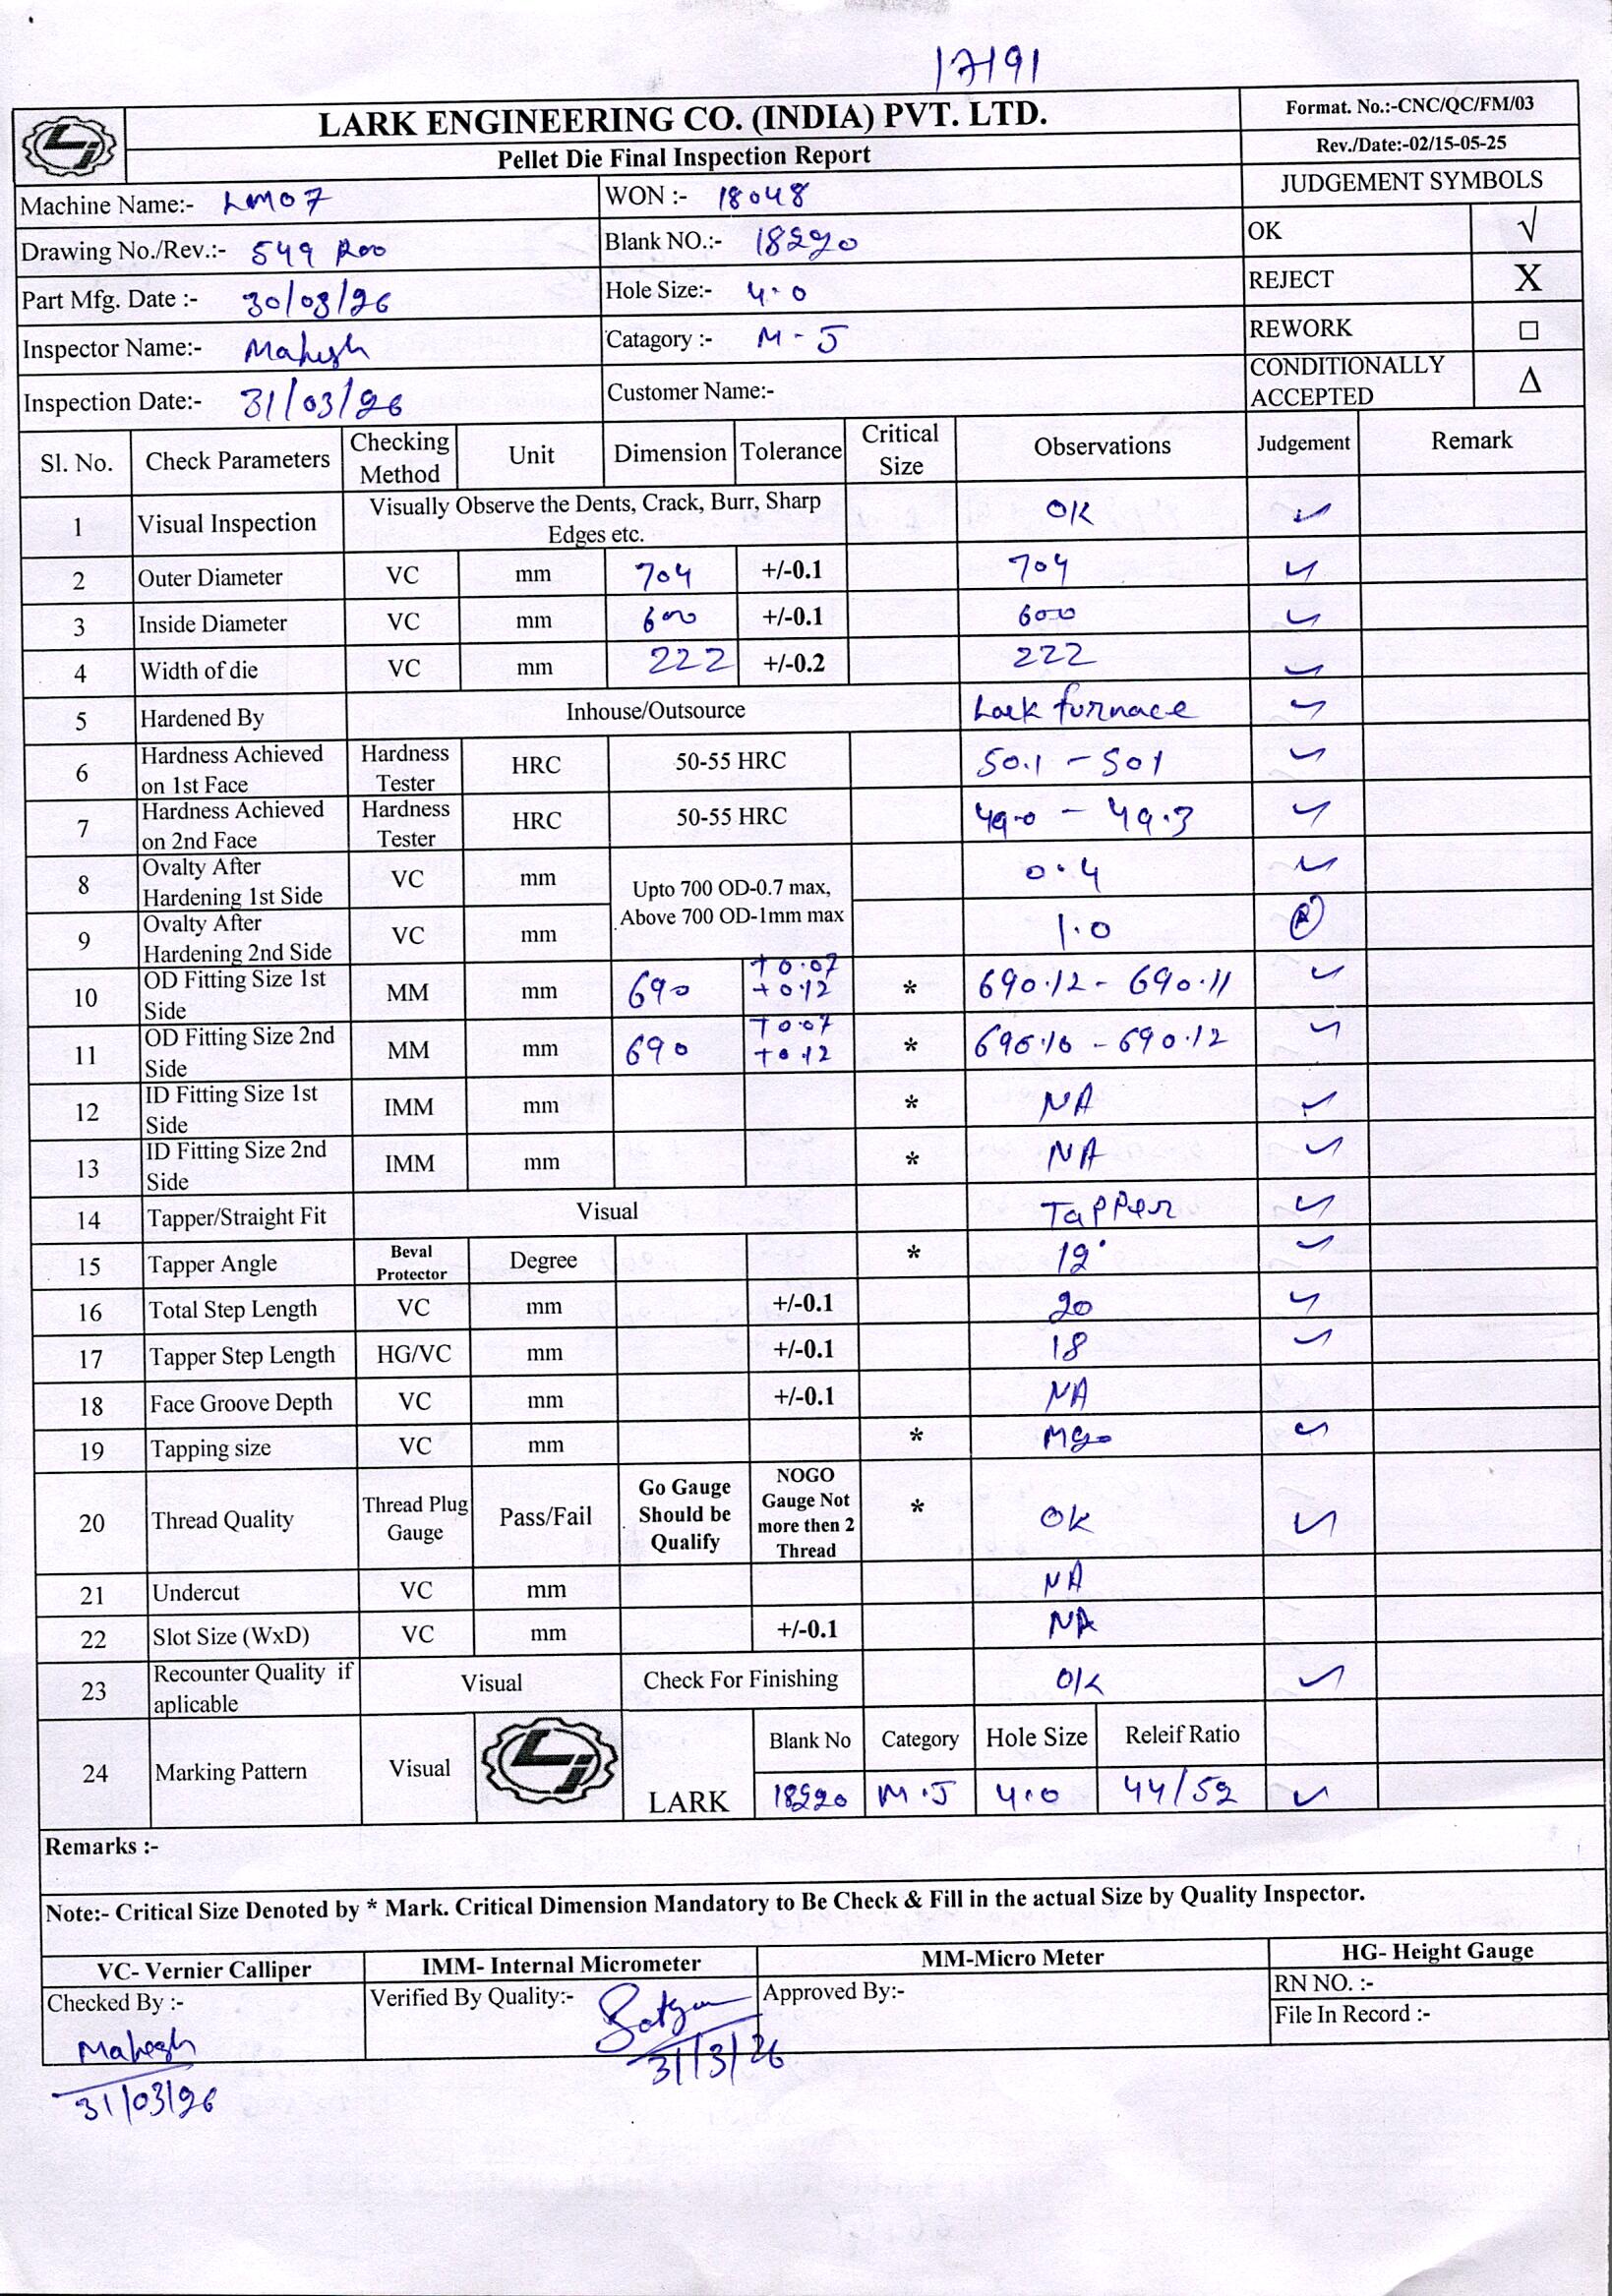 17191
LARK ENGINEERING CO. (INDIA) PVT. LTD.
Pellet Die Final Inspection Report
Format. No.:-CNC/QC/FM/03
Rev./Date:-02/15-05-25
Machine Name:- LM07
WON :- 18048
JUDGEMENT SYMBOLS
Drawing No./Rev.:- 549 R00
Blank NO.:- 18220
OK √
Part Mfg. Date :- 30/03/26
Hole Size:- 4.0
REJECT X
Inspector Name:- Mahesh
Catagory :- M-J
REWORK □
Inspection Date:- 31/03/26
Customer Name:-
CONDITIONALLY ACCEPTED Δ
Sl. No. Check Parameters Checking Method Unit Dimension Tolerance Critical Size Observations Judgement Remark
1 Visual Inspection Visually Observe the Dents, Crack, Burr, Sharp Edges etc. OK ✓
2 Outer Diameter VC mm 704 +/-0.1 704 ✓
3 Inside Diameter VC mm 600 +/-0.1 600 ✓
4 Width of die VC mm 222 +/-0.2 222 ✓
5 Hardened By Inhouse/Outsource Lark furnace ✓
6 Hardness Achieved on 1st Face Hardness Tester HRC 50-55 HRC 50.1 - 501 ✓
7 Hardness Achieved on 2nd Face Hardness Tester HRC 50-55 HRC 49.0 - 49.3 ✓
8 Ovalty After Hardening 1st Side VC mm Upto 700 OD-0.7 max, Above 700 OD-1mm max 0.4 ✓
9 Ovalty After Hardening 2nd Side VC mm 1.0
10 OD Fitting Size 1st Side MM mm 690 +0.07 +0.12 * 690.12 - 690.11 ✓
11 OD Fitting Size 2nd Side MM mm 690 +0.07 +0.12 * 690.10 - 690.12 ✓
12 ID Fitting Size 1st Side IMM mm * NA ✓
13 ID Fitting Size 2nd Side IMM mm * NA ✓
14 Tapper/Straight Fit Visual Tapper ✓
15 Tapper Angle Beval Protector Degree * 12° ✓
16 Total Step Length VC mm +/-0.1 20 ✓
17 Tapper Step Length HG/VC mm +/-0.1 18 ✓
18 Face Groove Depth VC mm +/-0.1 NA
19 Tapping size VC mm * M20 ✓
20 Thread Quality Thread Plug Gauge Pass/Fail Go Gauge Should be Qualify NOGO Gauge Not more then 2 Thread * Ok ✓
21 Undercut VC mm NA
22 Slot Size (WxD) VC mm +/-0.1 NA
23 Recounter Quality if aplicable Visual Check For Finishing OK ✓
24 Marking Pattern Visual LARK Blank No Category Hole Size Releif Ratio
18220 M.J 4.0 44/52 ✓
Remarks :-
Note:- Critical Size Denoted by * Mark. Critical Dimension Mandatory to Be Check & Fill in the actual Size by Quality Inspector.
VC- Vernier Calliper IMM- Internal Micrometer MM-Micro Meter HG- Height Gauge
Checked By :- Verified By Quality:- Approved By:- RN NO. :-
File In Record :-
Mahesh
31/03/26
31/3/26